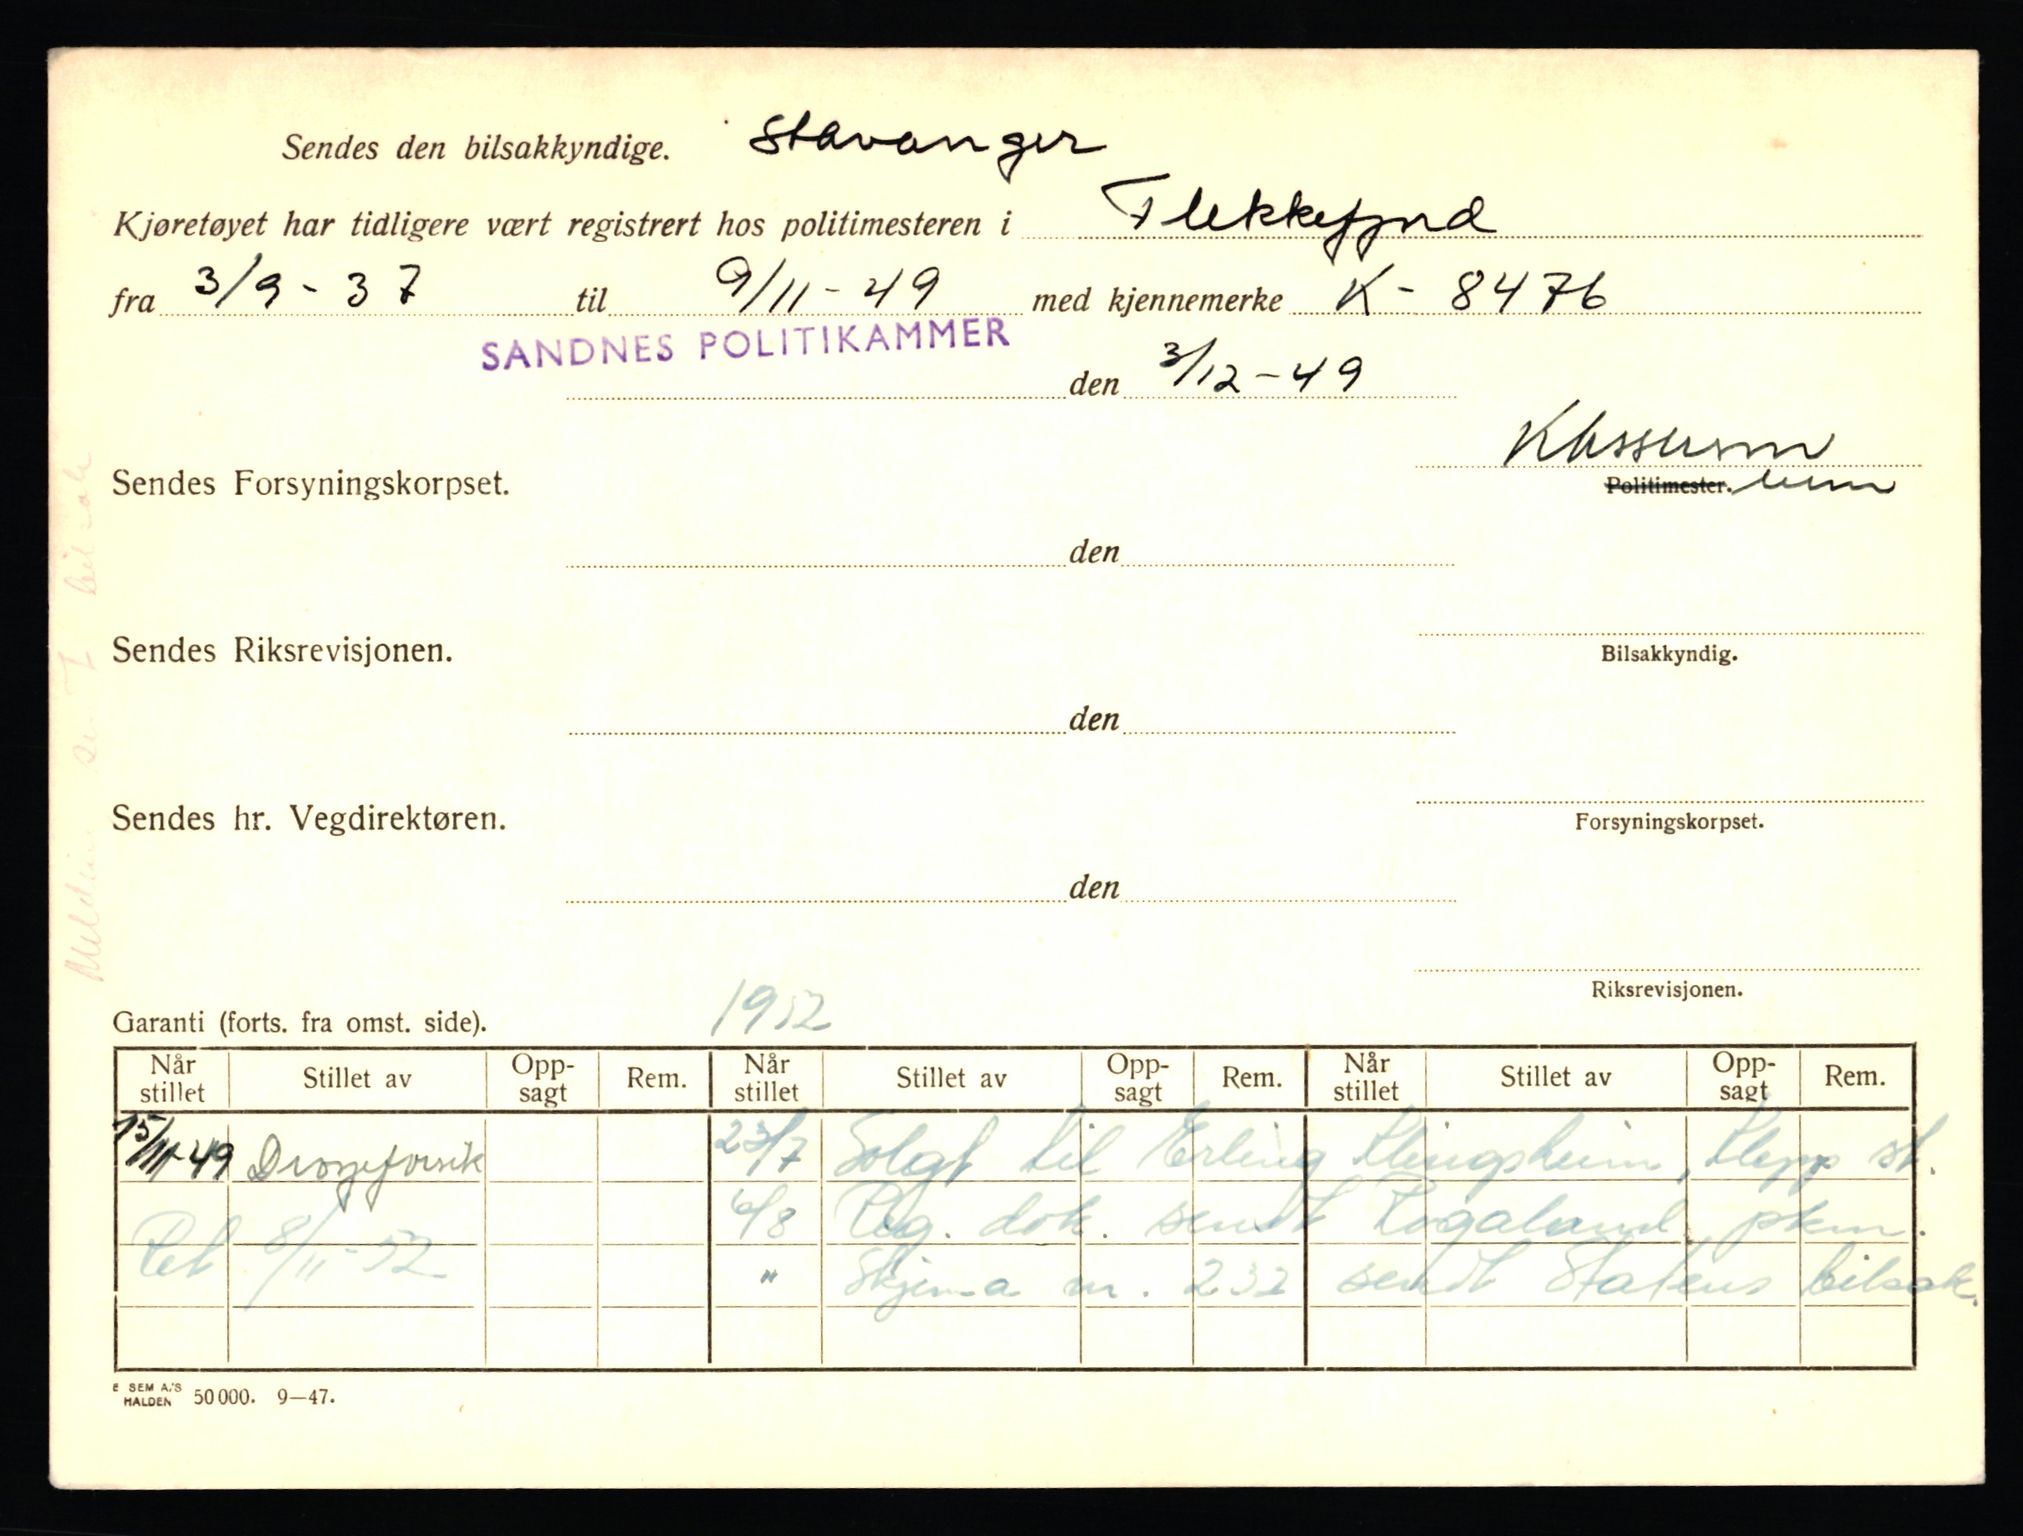 Sendes den bilsakkyndige. Stavanger
Kjøretøyet har tidligere vært registrert hos politimesteren i Flekkefjord
fra 3/9-37 til 9/11-49 med kjennemerke K-8476
SANDNES POLITIKAMMER
den 3/12-49
Sendes Forsyningskorpset.
Politimester.
den
Sendes Riksrevisjonen.
Bilsakkyndig.
den
Sendes hr. Vegdirektøren.
Forsyningskorpset.
den
Riksrevisjonen.
Garanti (forts. fra omst. side). 1952
Når stillet Stillet av Opp-sagt Rem. Når stillet Stillet av Opp-sagt Rem. Når stillet Stillet av Opp-sagt Rem.
15/11-49 23/7 Solgt til Erling Klingsheim, Klepp st.
6/8 Reg. dok. sendt Rogaland pkm.
Ret 8/11-52 " Skjema nr. 232 sendt Statens bilsak.
E SEM A/S HALDEN 50000. 9-47.